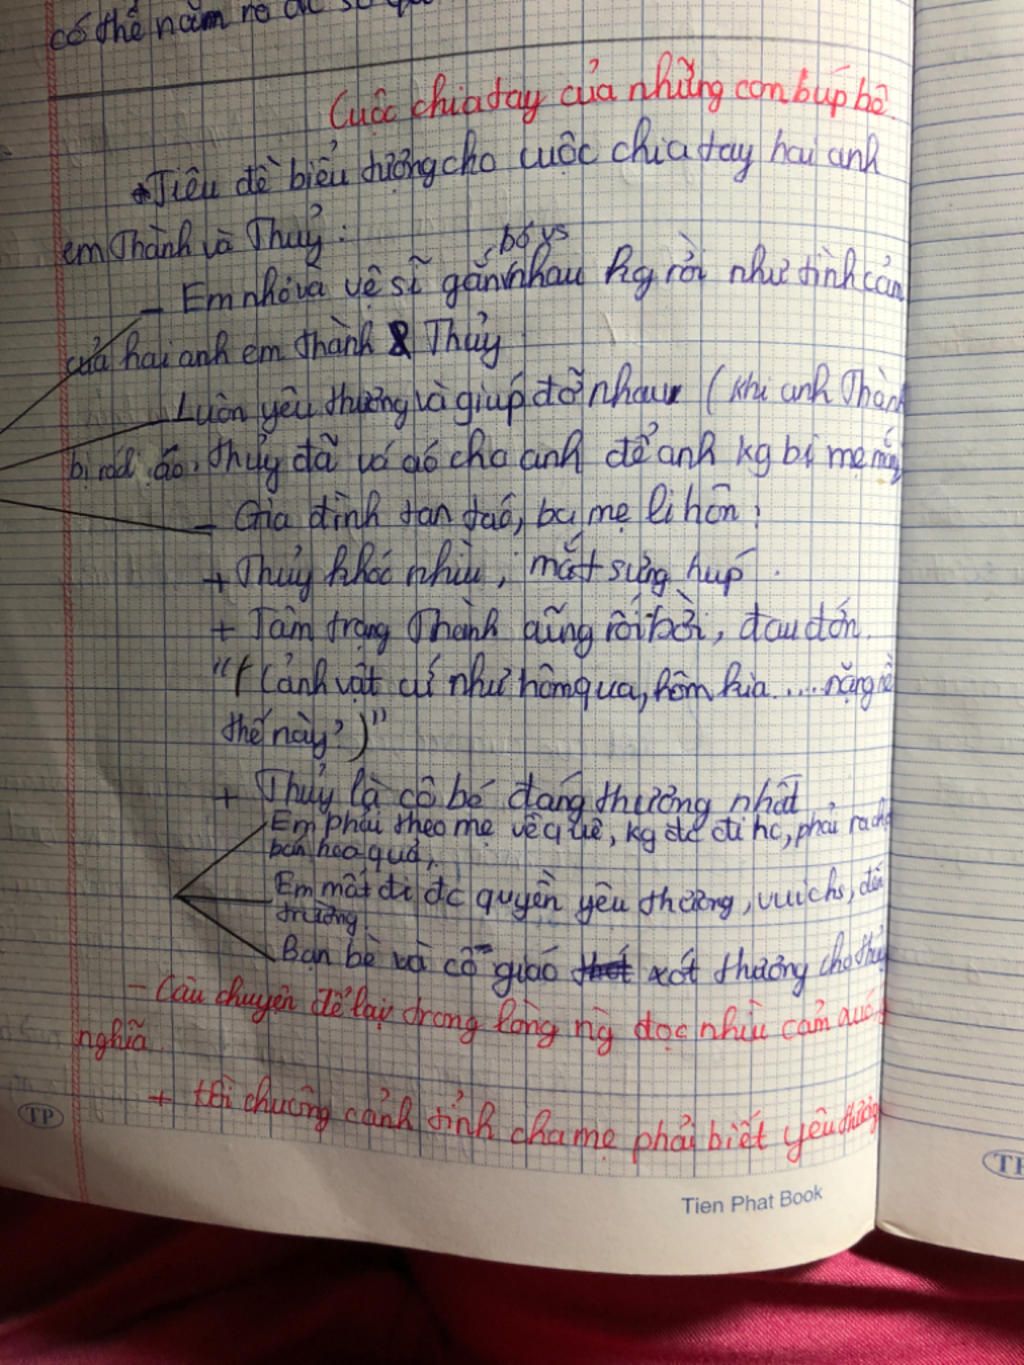 có thể nắm rõ
Cuộc chia tay của những con búp bê.
*Tiêu đề biểu tượng cho cuộc chia tay hai anh
em Thành và Thuỷ:
bó vs
- Em nhỏ và vệ sĩ gắn nhau kg rời như tình cảm
của hai anh em Thành & Thủy
- Luôn yêu thương và giúp đỡ nhau (khi anh Thành
bị rách áo, Thủy đã vá aó cho anh để anh kg bị mẹ mắng
- Gia đình tan taó, ba mẹ li hôn:
+ Thủy khóc nhìu, mắt sưng húp.
+ Tâm trạng Thành cũng rối bời, đau đớn.
"(Cảnh vật cứ như hôm qua, hôm kia.... nặng nề
thế này?)"
+ Thủy là cô bé đáng thương nhất
Em phải theo mẹ về quê, kg đc đi hc, phải ra chợ
bán hoa quả,
Em mất đi đc quyền yêu thương, vui chs, đến
trường.
Bạn bè và cô giáo xót thương cho Thủy
- Câu chuyện để lại trong lòng ng` đọc nhìu cảm
nghĩa
+ tới chuông cảnh tỉnh cha mẹ phải biết yêu thương
TP
Tien Phat Book